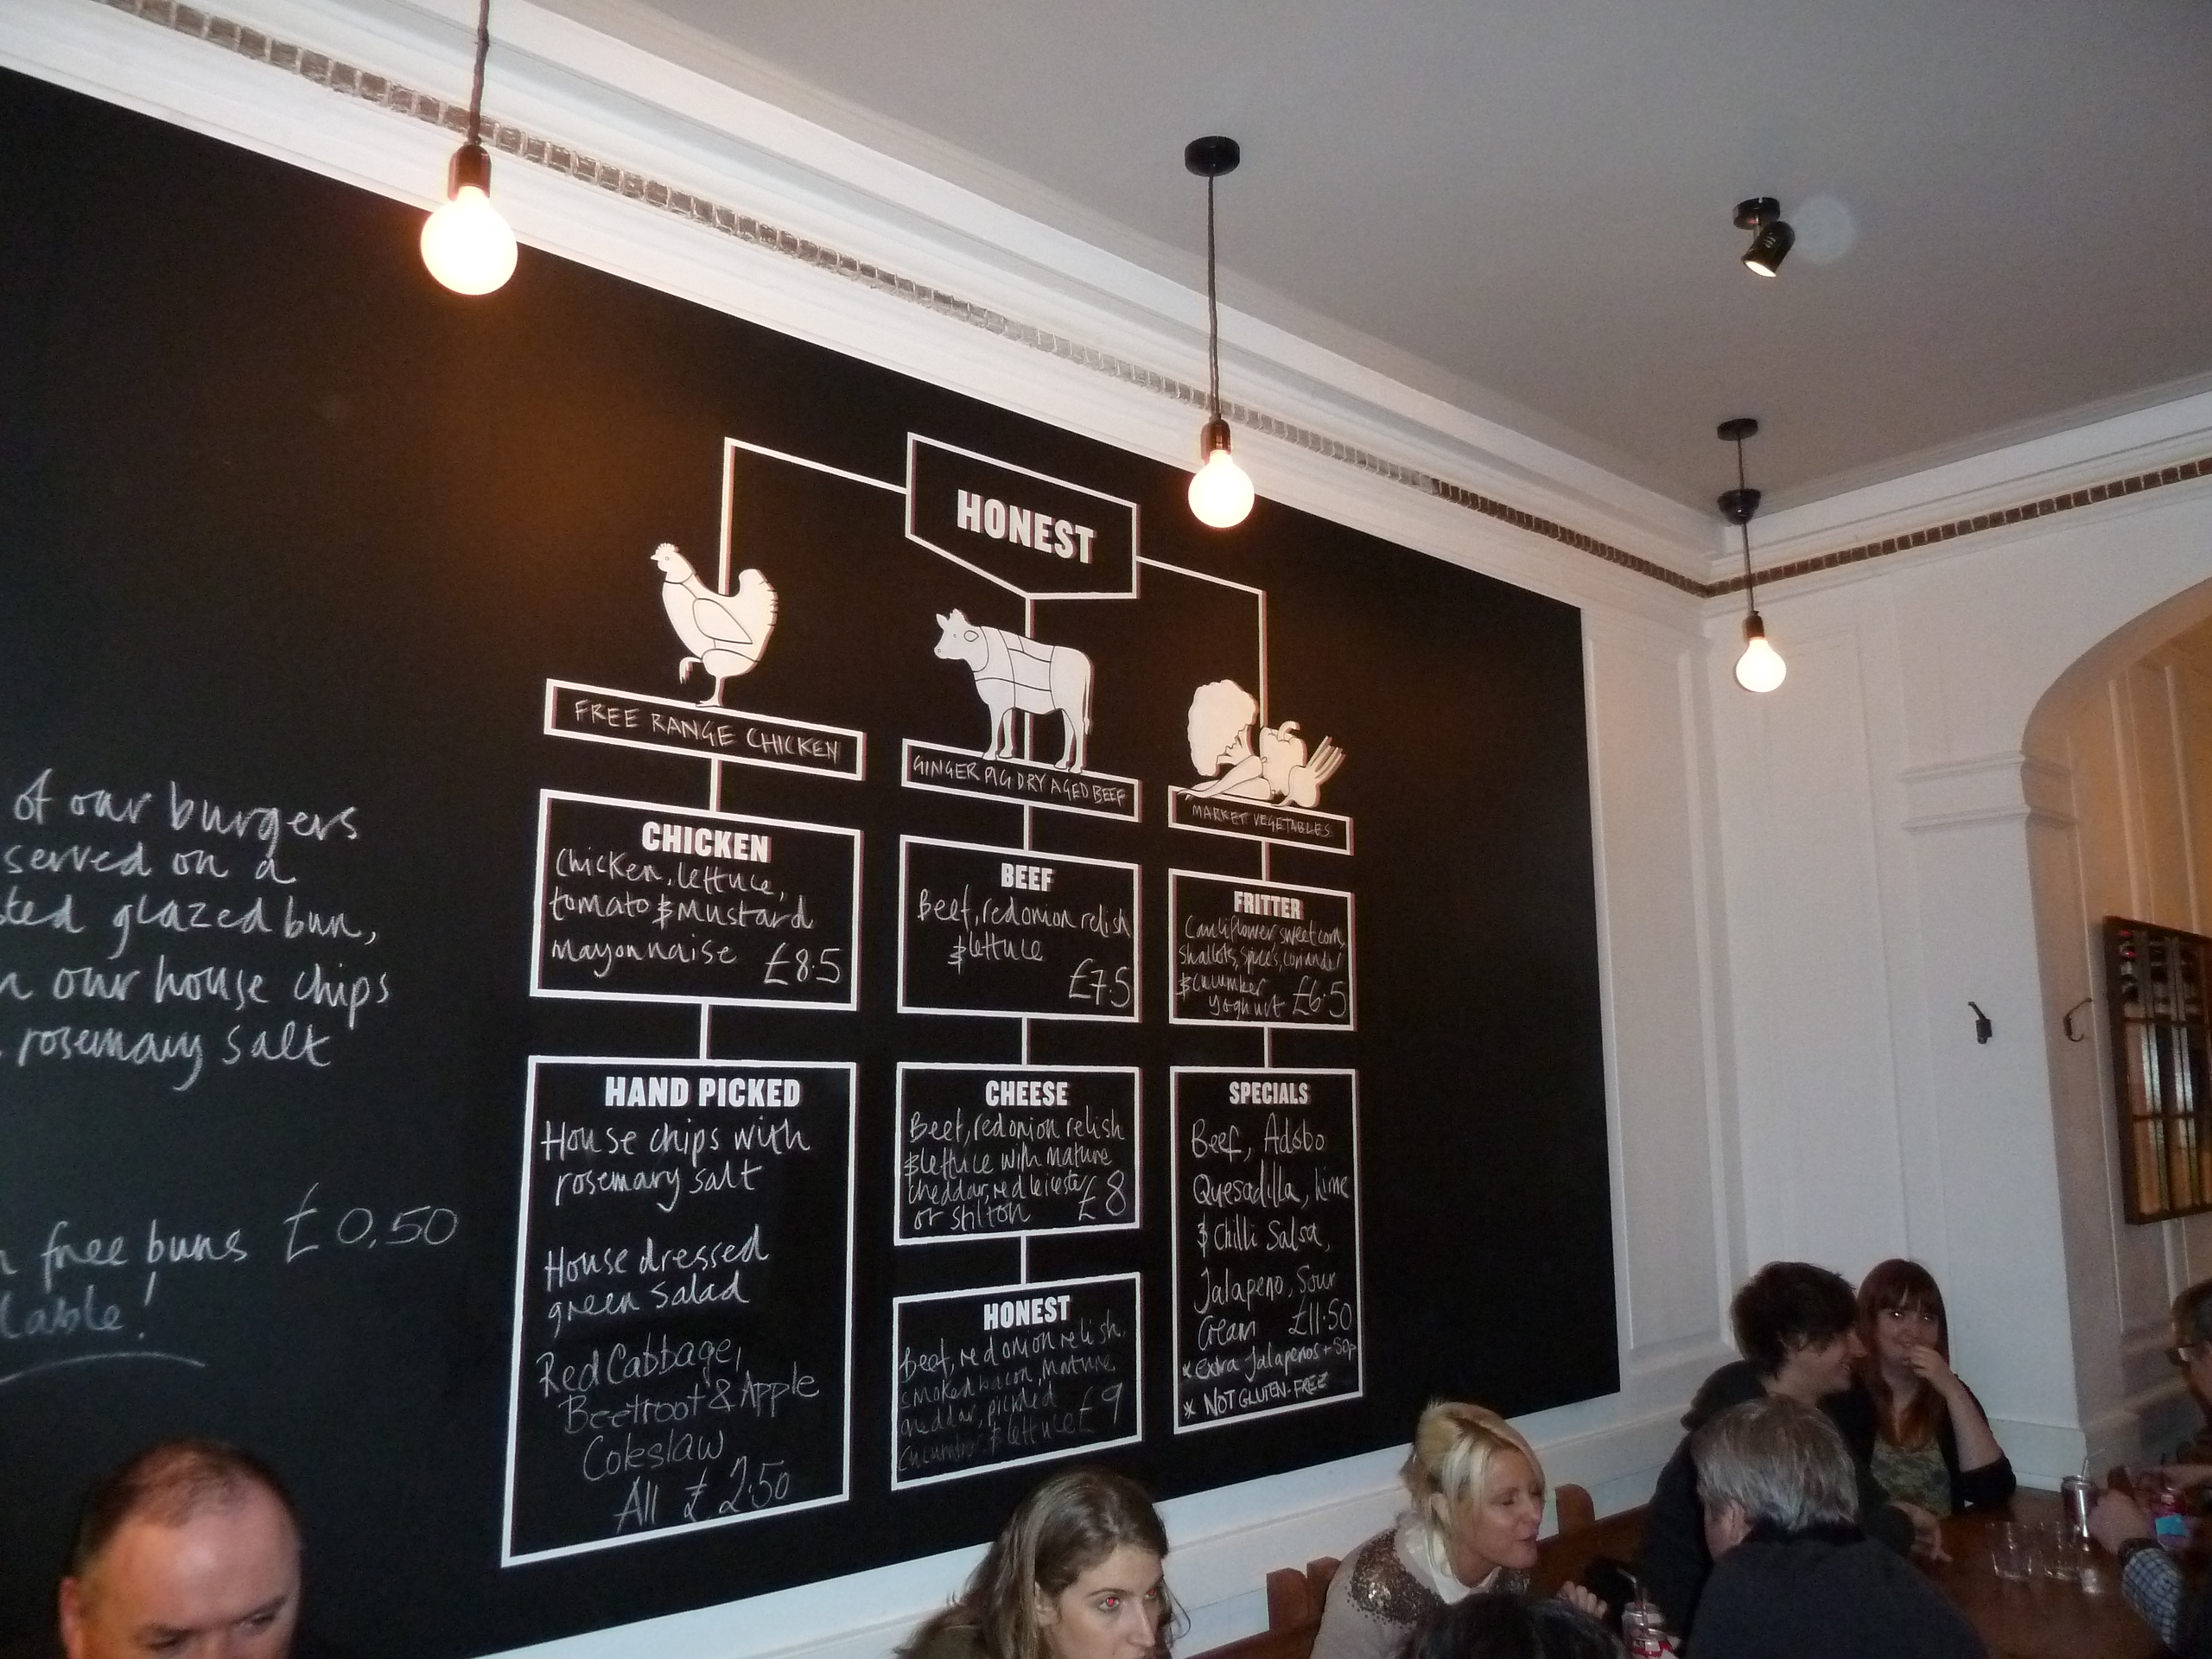 of our burgers
served on a
glazed bun,
our house chips
rosemary salt
free buns £0.50
HONEST
FREE RANGE CHICKEN
CHICKEN
Chicken, lettuce,
tomato & mustard
mayonnaise £8.5
HAND PICKED
House chips with
rosemary salt
House dressed
green salad
Red Cabbage,
Beetroot & Apple
Coleslaw
All £2.50
GINGER PIG DRY AGED BEEF
BEEF
Beef, red onion relish
& lettuce
£7.5
CHEESE
Beef, red onion relish
& lettuce with mature
cheddar, red leicester
or stilton £8
HONEST
Beef, red onion relish,
smoked bacon, mature
cheddar, pickled
cucumber & lettuce £9
MARKET VEGETABLES
FRITTER
Cauliflower, sweetcorn,
shallots, spices, coriander
& cucumber
yoghurt £6.5
SPECIALS
Beef, Adobo
Quesadilla, Lime
& Chilli Salsa,
Jalapeno, Sour
Cream £11.50
* extra Jalapenos + 50p
* NOT GLUTEN-FREE